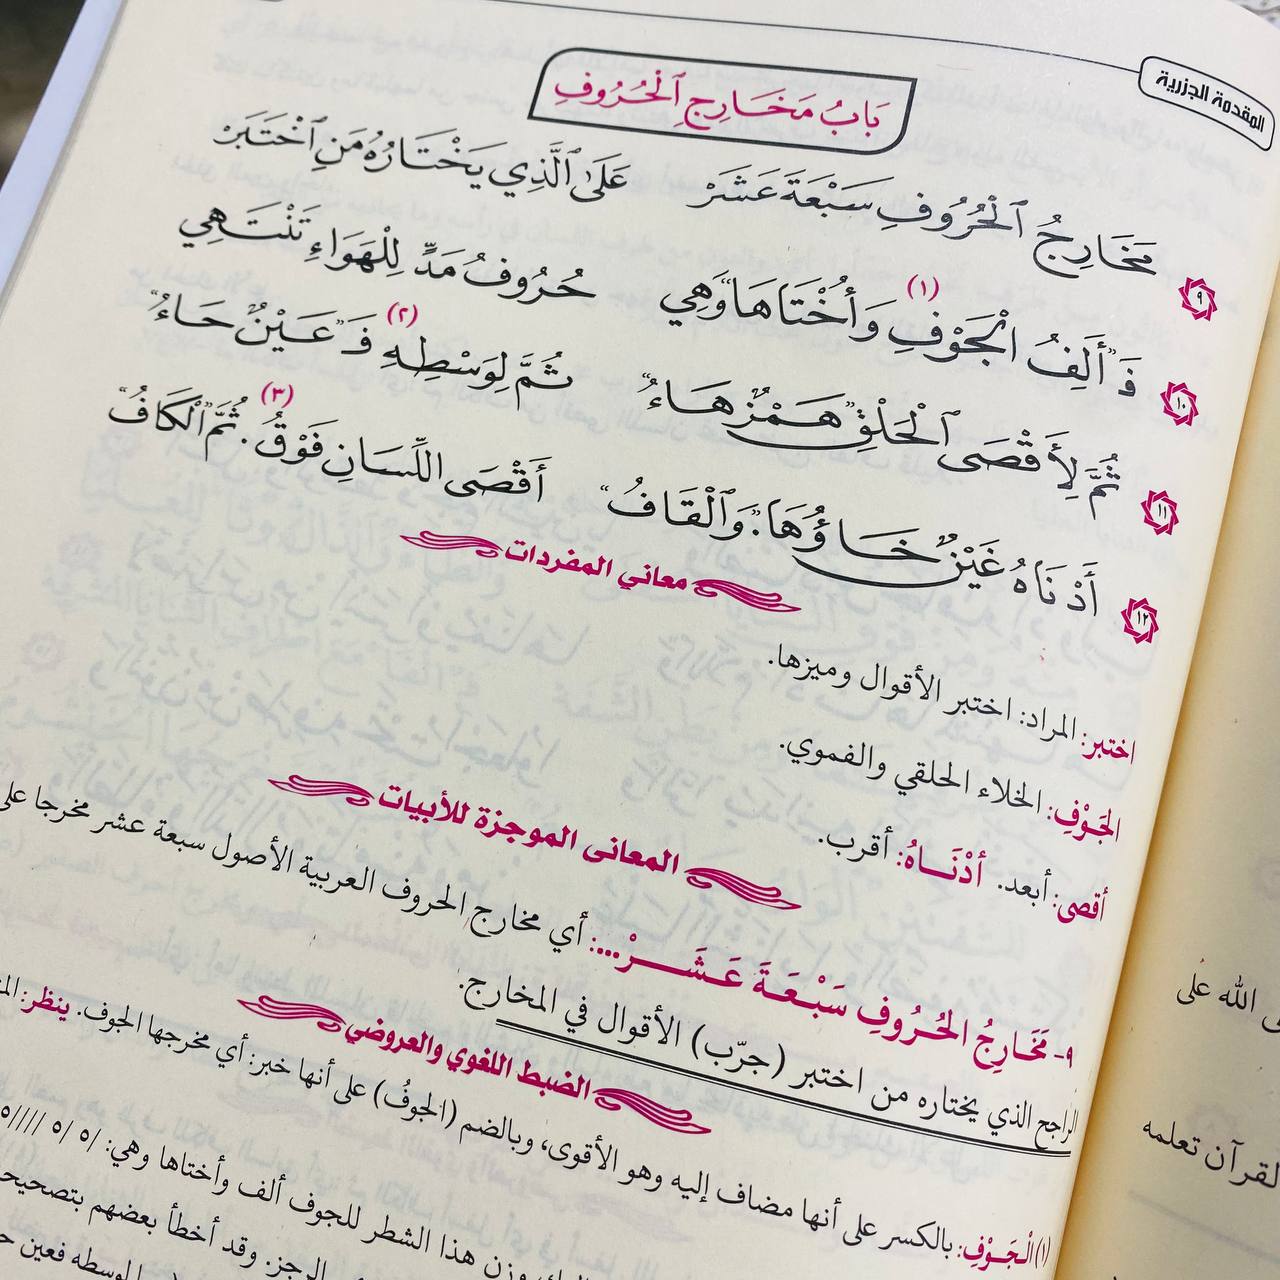 المقدمة الجزرية
بَابُ مَخَارِجِ ٱلْحُرُوفِ
٩ مَخَارِجُ ٱلْحُرُوفِ سَبْعَةَ عَشَرْ عَلَى ٱلَّذِي يَخْتَارُهُ مَنِ ٱخْتَبَرْ
١٠ فَـ"أَلِفُ ٱلْجَوْفِ (١) وَأُخْتَاهَا" وَهِي حُرُوفُ مَدٍّ لِلْهَوَاءِ تَنْتَهِي
١١ ثُمَّ لِأَقْصَى ٱلْحَلْقِ "هَمْزٌ هَاءُ" ثُمَّ لِوَسْطِهِ (٢) فَـ"عَيْنٌ حَاءُ"
١٢ أَدْنَاهُ "غَيْنٌ خَاؤُهَا". "وَٱلْقَافُ" أَقْصَى اللِّسَانِ فَوْقُ (٣). ثُمَّ "ٱلْكَافُ"
معاني المفردات
اختبر: المراد: اختبر الأقوال وميزها.
الجَوْفِ: الخلاء الحلقي والفموي.
أقصى: أبعد. أدْنَـاهُ: أقرب.
المعاني الموجزة للأبيات
٩- مَخَارِجُ الحُرُوفِ سَبْعَةَ عَشَـرْ...: أي مخارج الحروف العربية الأصول سبعة عشر مخرجا على
الراجح الذي يختاره من اختبر (جرّب) الأقوال في المخارج.
الضبط اللغوي والعروضي
(١) الْـجَـوْفِ: بالكسر على أنها مضاف إليه وهو الأقوى، وبالضم (الجوفُ) على أنها خبر: أي مخرجها الجوف. ينظر:
وزن هذا الشطر للجوف ألف وأختاها وهي:
الرجز. وقد أخطأ بعضهم بتصحيحه
لوسطه فعين
الله على
القرآن تعلمه